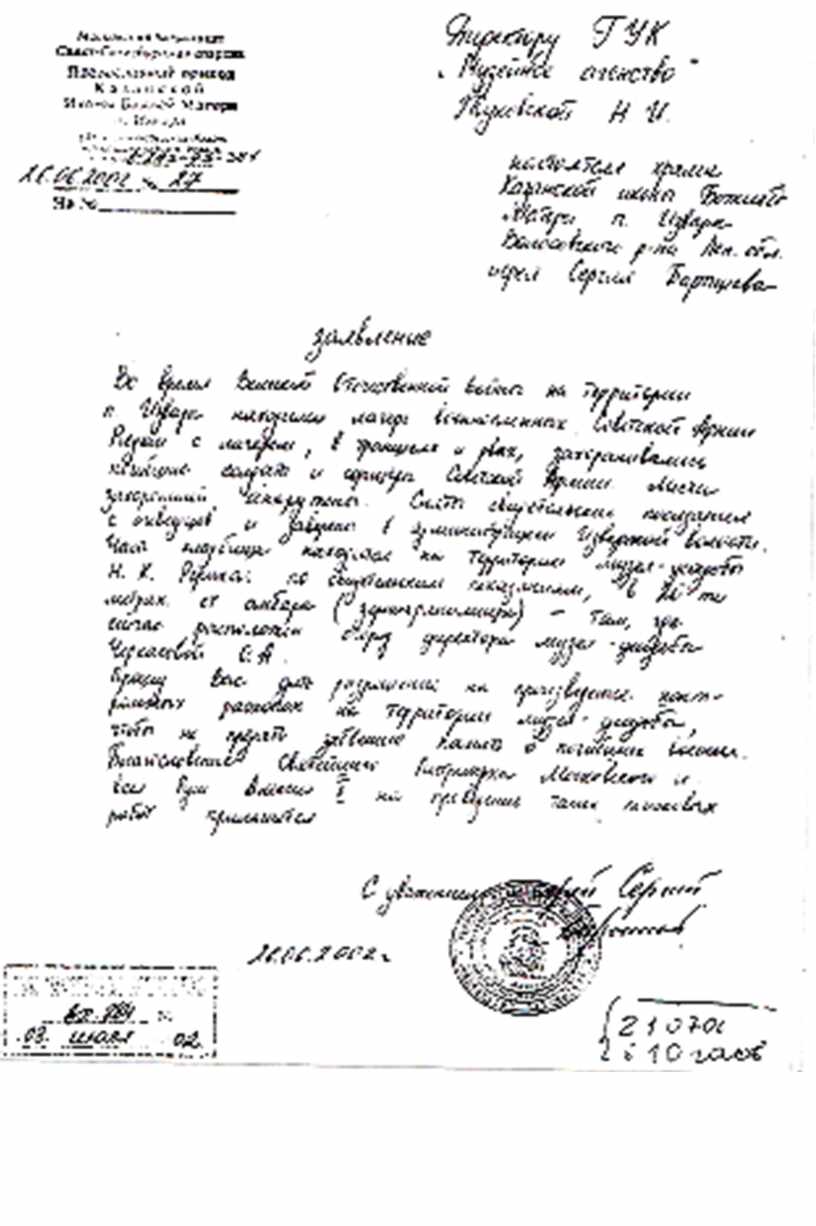 Московский Патриархат
Санкт-Петербургская епархия
Православный приход
Казанской
Иконы Божией Матери
п. Извара
26.06.2002 № 27
На №
Директору ГУК
"Музейное агенство"
Н. И.
настоятеля храма
Казанской иконы Божией
Матери п. Извара
Волосовского р-на Лен. обл.
иерея Сергия
заявление
Во время Великой Отечественной войны на территории
п. Извара находился лагерь военнопленных Советской Армии
Рядом с лагерем, в траншеях и рвах, захоранивались
погибшие солдаты и офицеры Советской Армии Места
захоронений Сняты свидетельские показания
с очевидцев и заверены в администрации Изварской волости.
Часть кладбища находилась на территории музея-усадьбы
Н. К. Рериха: по свидетельским показаниям, в
метрах от амбара (зернохранилища) – там, где
сейчас расположен огород директора музея-усадьбы
Черкасовой О. А.
Прошу Вас дать разрешение на произведение
раскопок на территории музея-усадьбы,
чтобы не предать забвению память о погибших воинах.
Благословение Святейшего Патриарха Московского и
всея Руси Алексия II на проведение таких поисковых
работ прилагается
С уважением иерей Сергий
26.06.2002 г
вх. №
03. июля 02.
21 07
в 10 часов